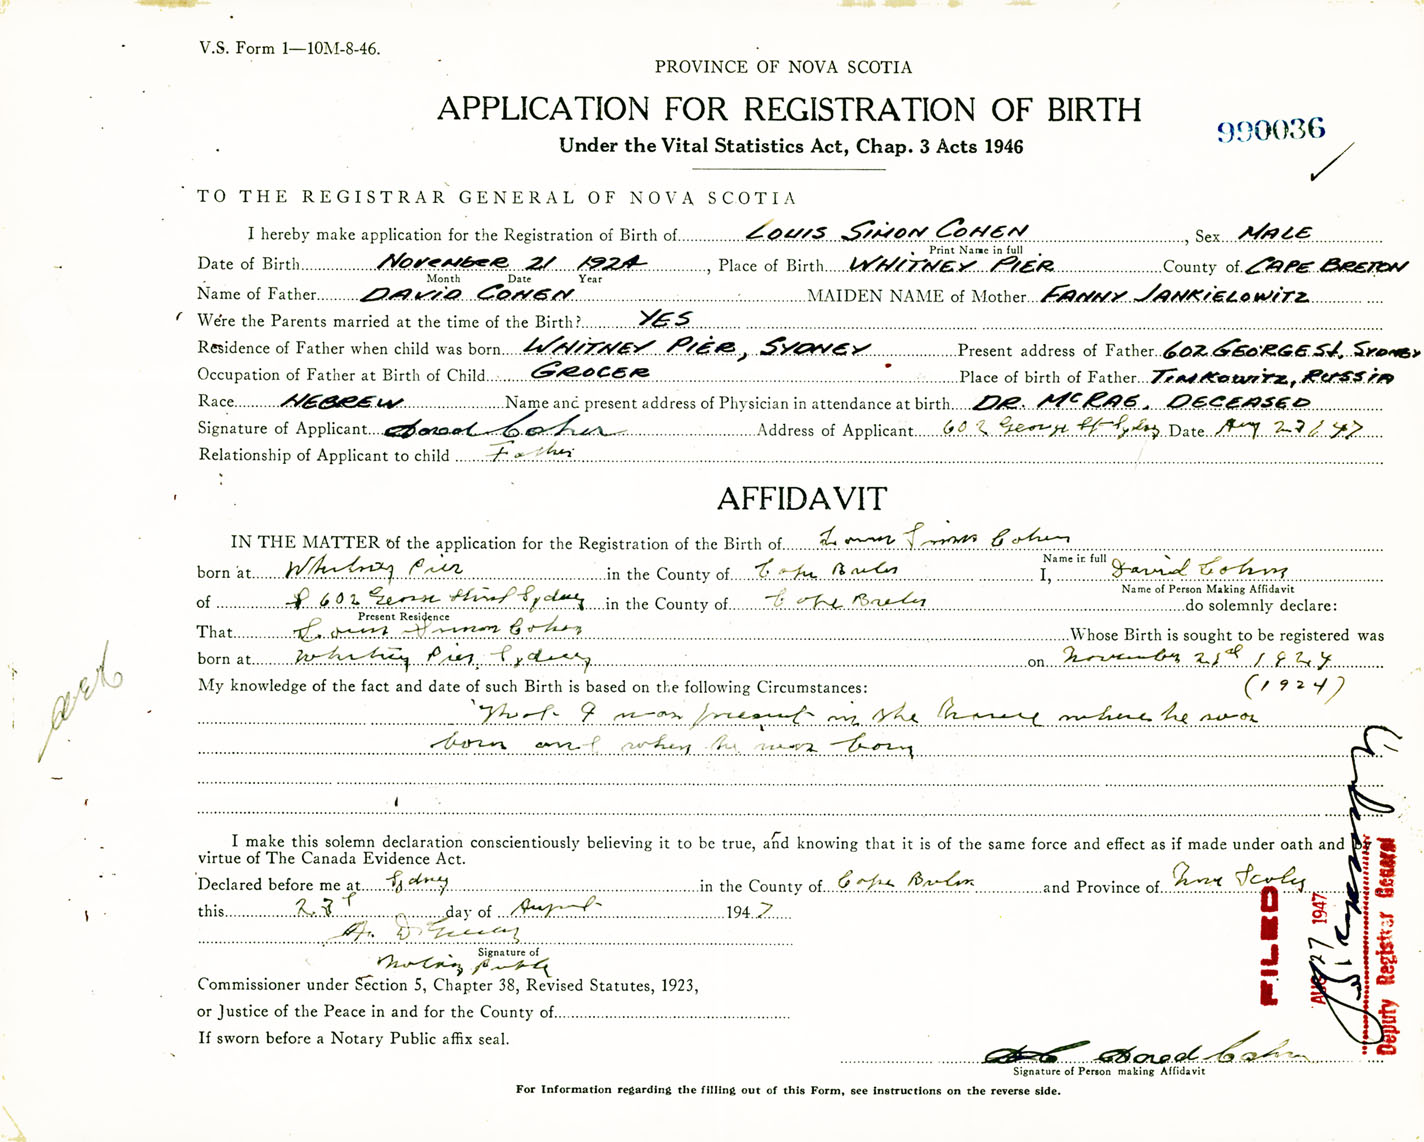 V.S. Form 1—10M-8-46.
PROVINCE OF NOVA SCOTIA
APPLICATION FOR REGISTRATION OF BIRTH
990036
Under the Vital Statistics Act, Chap. 3 Acts 1946
TO THE REGISTRAR GENERAL OF NOVA SCOTIA
I hereby make application for the Registration of Birth of LOUIS SIMON COHEN, Sex MALE
Print Name in full
Date of Birth NOVEMBER 21 1924, Place of Birth WHITNEY PIER County of CAPE BRETON
Month Date Year
Name of Father DAVID COHEN MAIDEN NAME of Mother FANNY JANKIELOWITZ
Were the Parents married at the time of the Birth? YES
Residence of Father when child was born WHITNEY PIER, SYDNEY Present address of Father 602 GEORGE St, SYDNEY
Occupation of Father at Birth of Child GROCER Place of birth of Father TIMKOWITZ, RUSSIA
Race HEBREW Name and present address of Physician in attendance at birth DR. McRAE, DECEASED
Signature of Applicant David Cohen Address of Applicant 602 George St Sydney Date Aug 23/47
Relationship of Applicant to child Father
AFFIDAVIT
IN THE MATTER of the application for the Registration of the Birth of Louis Simon Cohen
Name in full
born at Whitney Pier in the County of Cape Breton I, David Cohen
Name of Person Making Affidavit
of 602 George Street Sydney in the County of Cape Breton do solemnly declare:
Present Residence
That Louis Simon Cohen Whose Birth is sought to be registered was
born at Whitney Pier, Sydney on November 21st 1924
My knowledge of the fact and date of such Birth is based on the following Circumstances: (1924)
That I was present in the house where he was
born and when he was born
I make this solemn declaration conscientiously believing it to be true, and knowing that it is of the same force and effect as if made under oath and by
virtue of The Canada Evidence Act.
Declared before me at Sydney in the County of Cape Breton and Province of Nova Scotia
this 23d day of August 1947
Signature of
Notary Public
Commissioner under Section 5, Chapter 38, Revised Statutes, 1923,
or Justice of the Peace in and for the County of
If sworn before a Notary Public affix seal.
David Cohen
Signature of Person making Affidavit
For Information regarding the filling out of this Form, see instructions on the reverse side.
FILED
AUG 27 1947
Deputy Registrar General